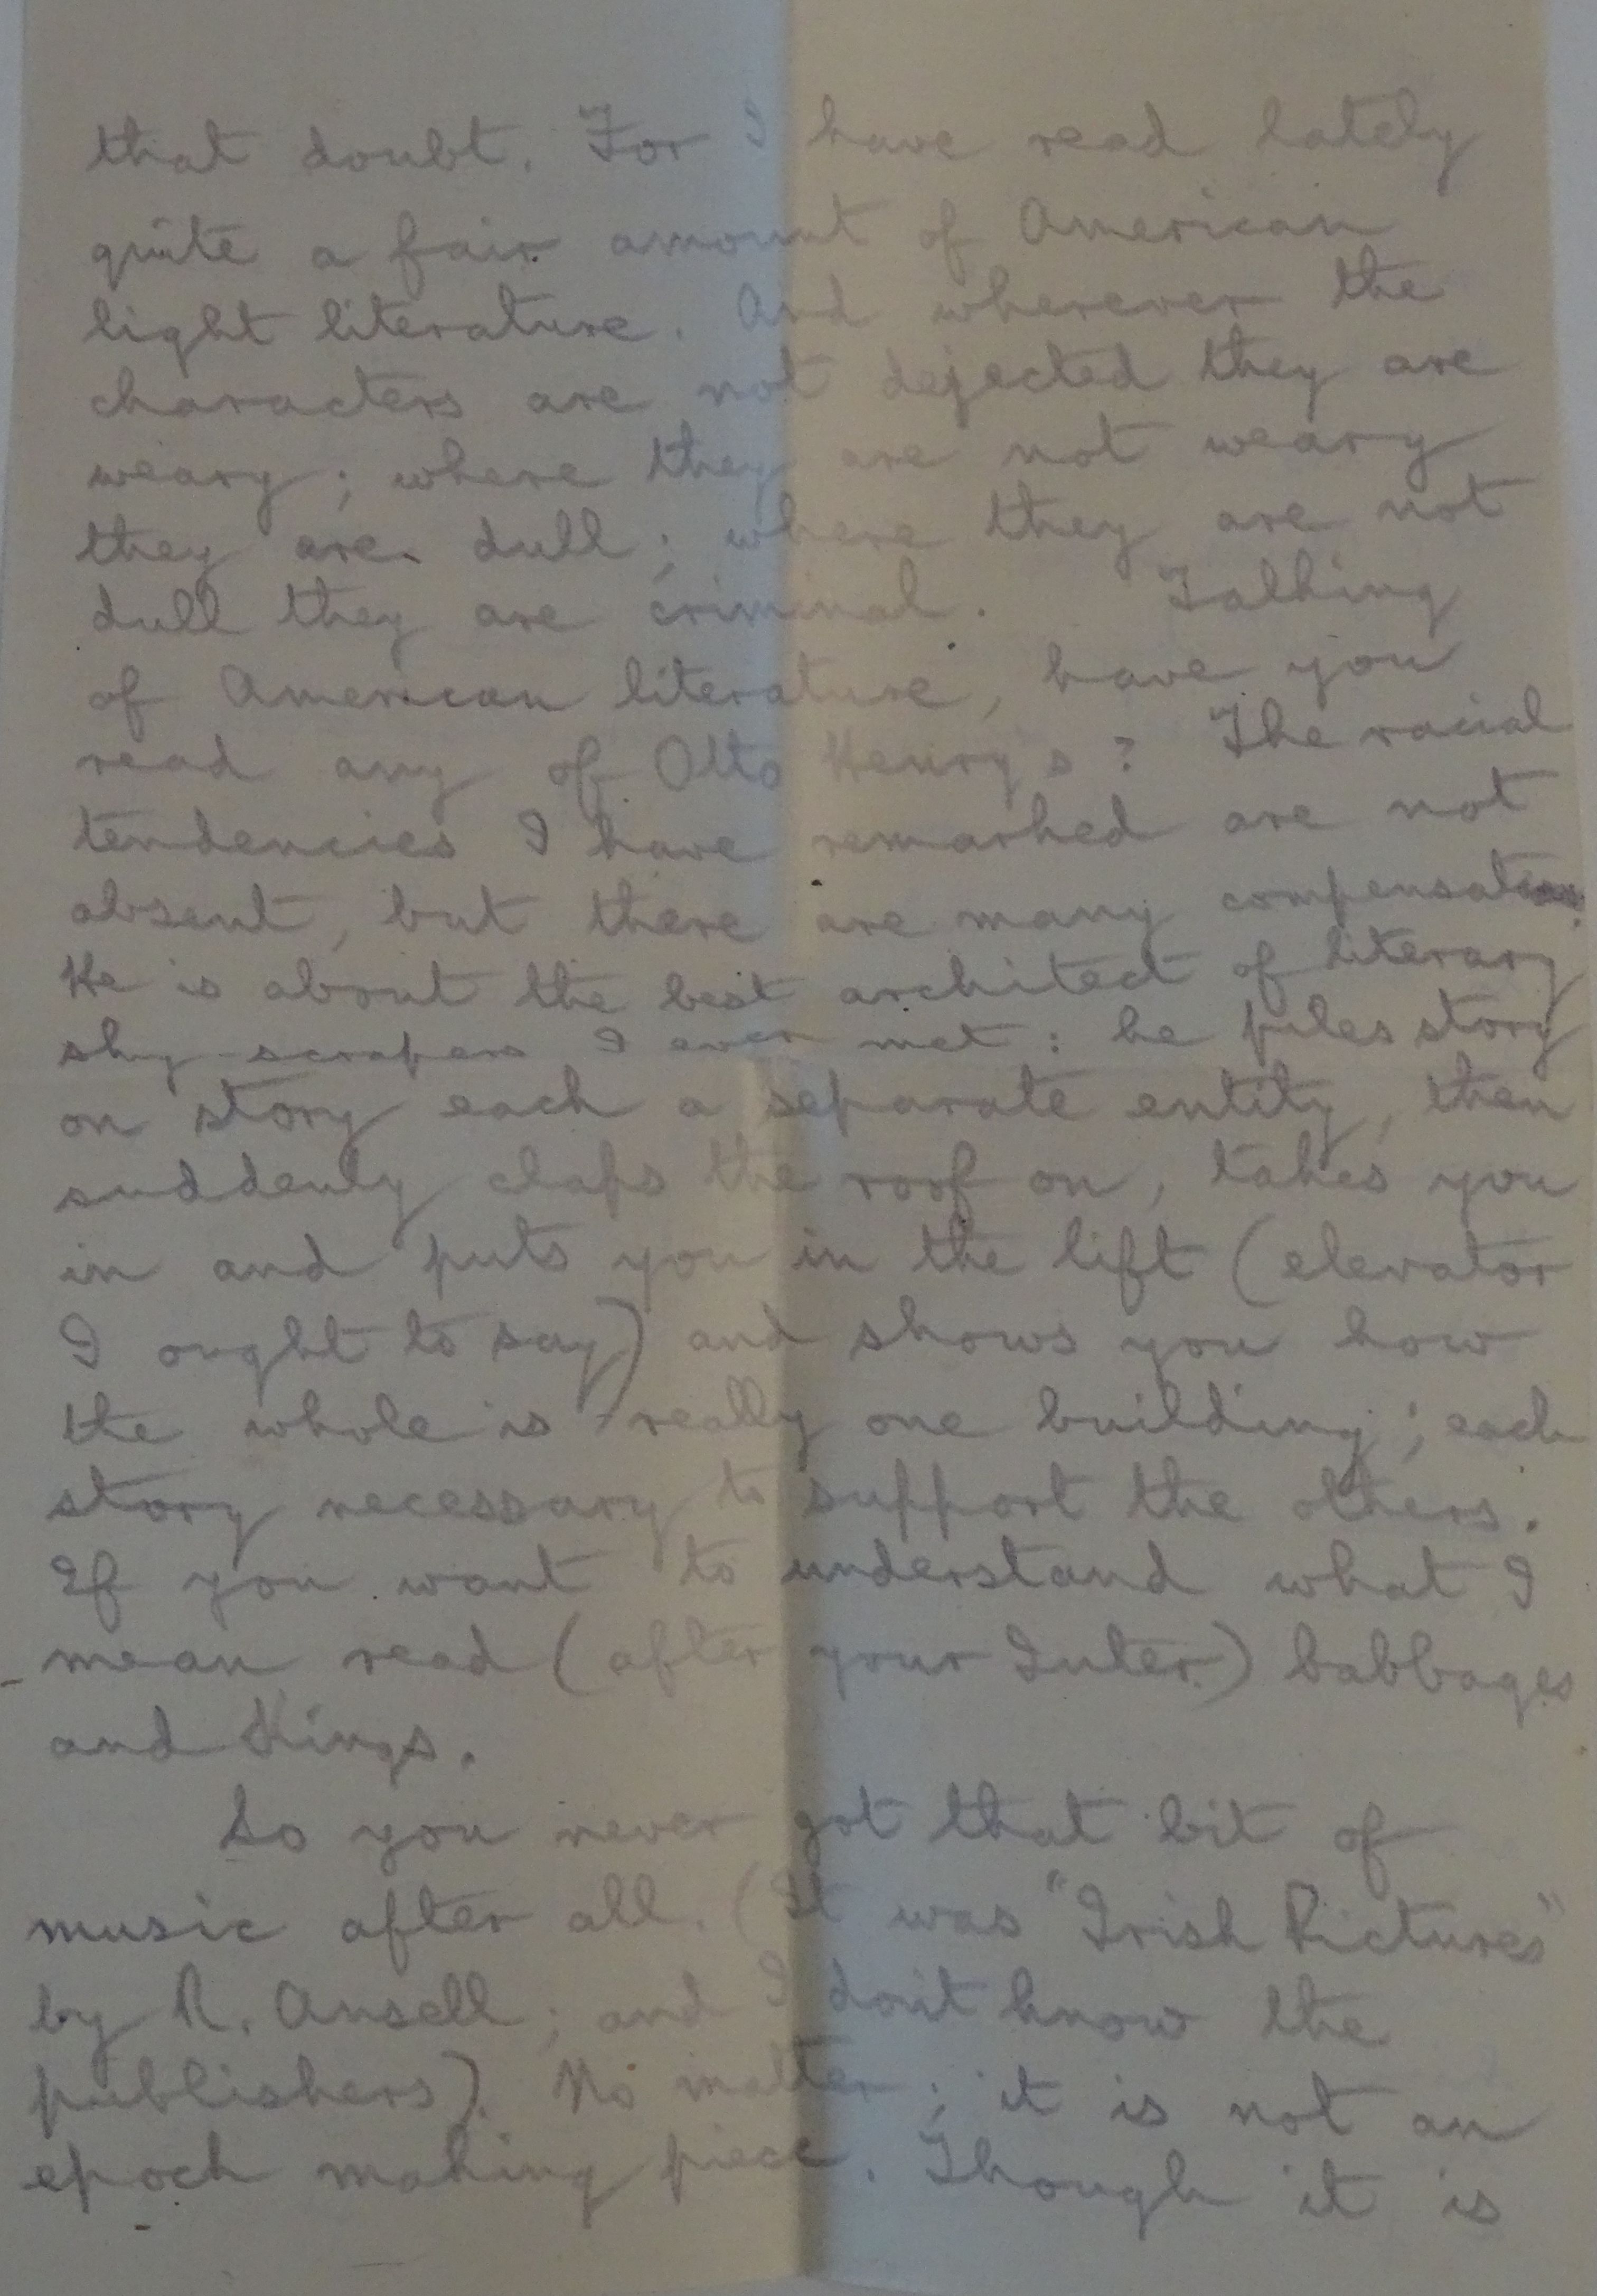 that doubt. For I have read lately
quite a fair amount of American
light literature. And wherever the
characters are not dejected they are
weary; where they are not weary
they are dull; where they are not
dull they are criminal. Talking
of American literature, have you
read any of Otto Henry's? The racial
tendencies I have remarked are not
absent, but there are many compensations.
He is about the best architect of literary
sky-scrapers I ever met: he piles story
on story each a separate entity, then
suddenly claps the roof on, takes you
in and puts you in the lift (elevator
I ought to say) and shows you how
the whole is really one building; each
story necessary to support the others.
If you want to understand what I
mean read (after your Inter.) Cabbages
and Kings.
So you never got that bit of
music after all. (It was "Irish Pictures"
by R. Ansell; and I don't know the
publishers). No matter; it is not an
epoch making piece. Though it is